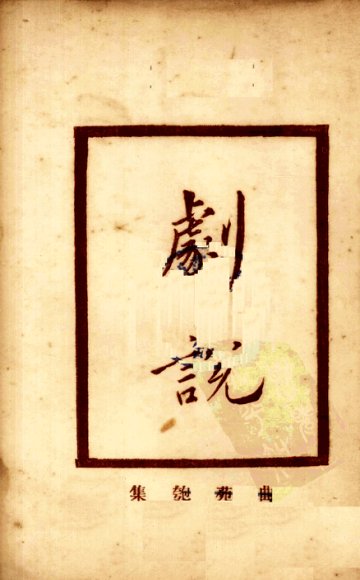 劇
說
曲苑匏集